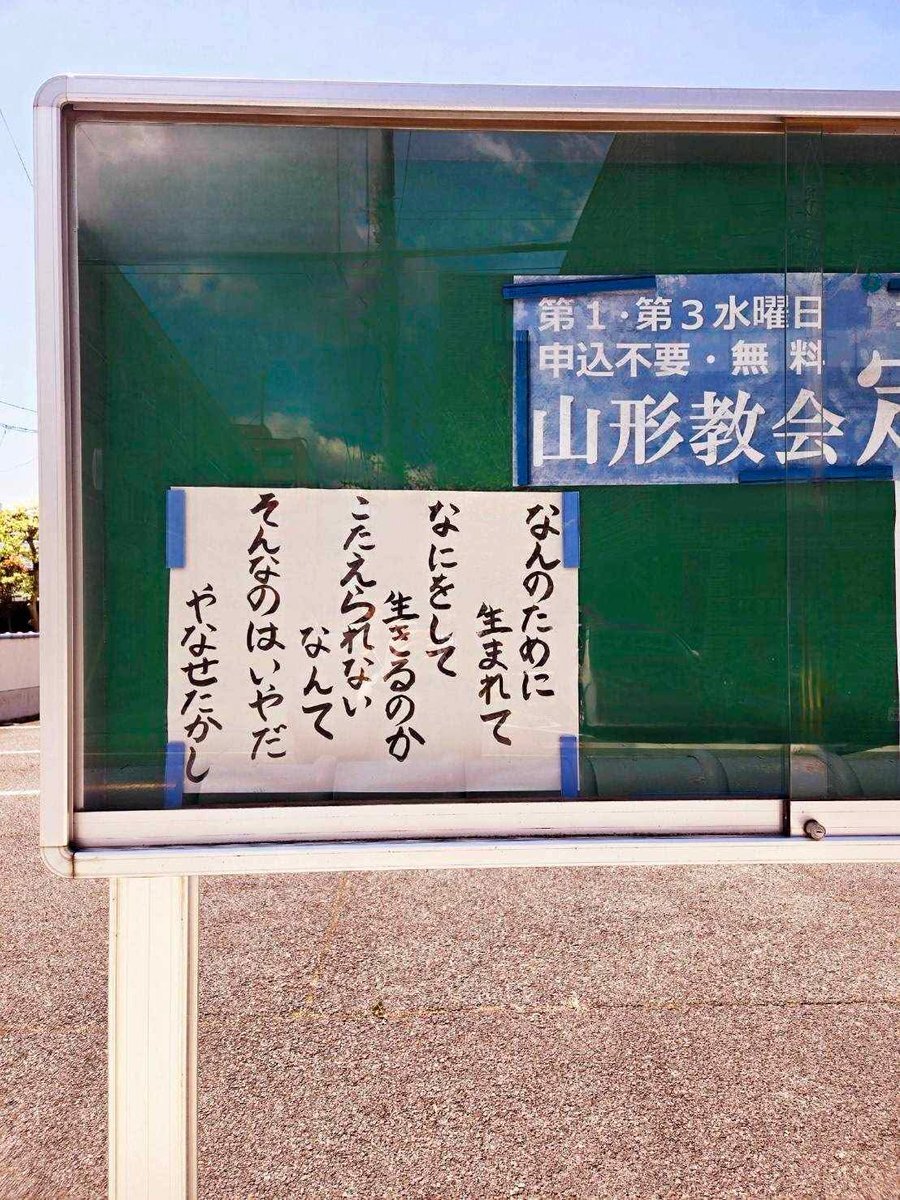 第1・第3水曜日
申込不要・無料
山形教会
なんのために
生まれて
なにをして
生きるのか
こたえられない
なんて
そんなのはいやだ
やなせたかし